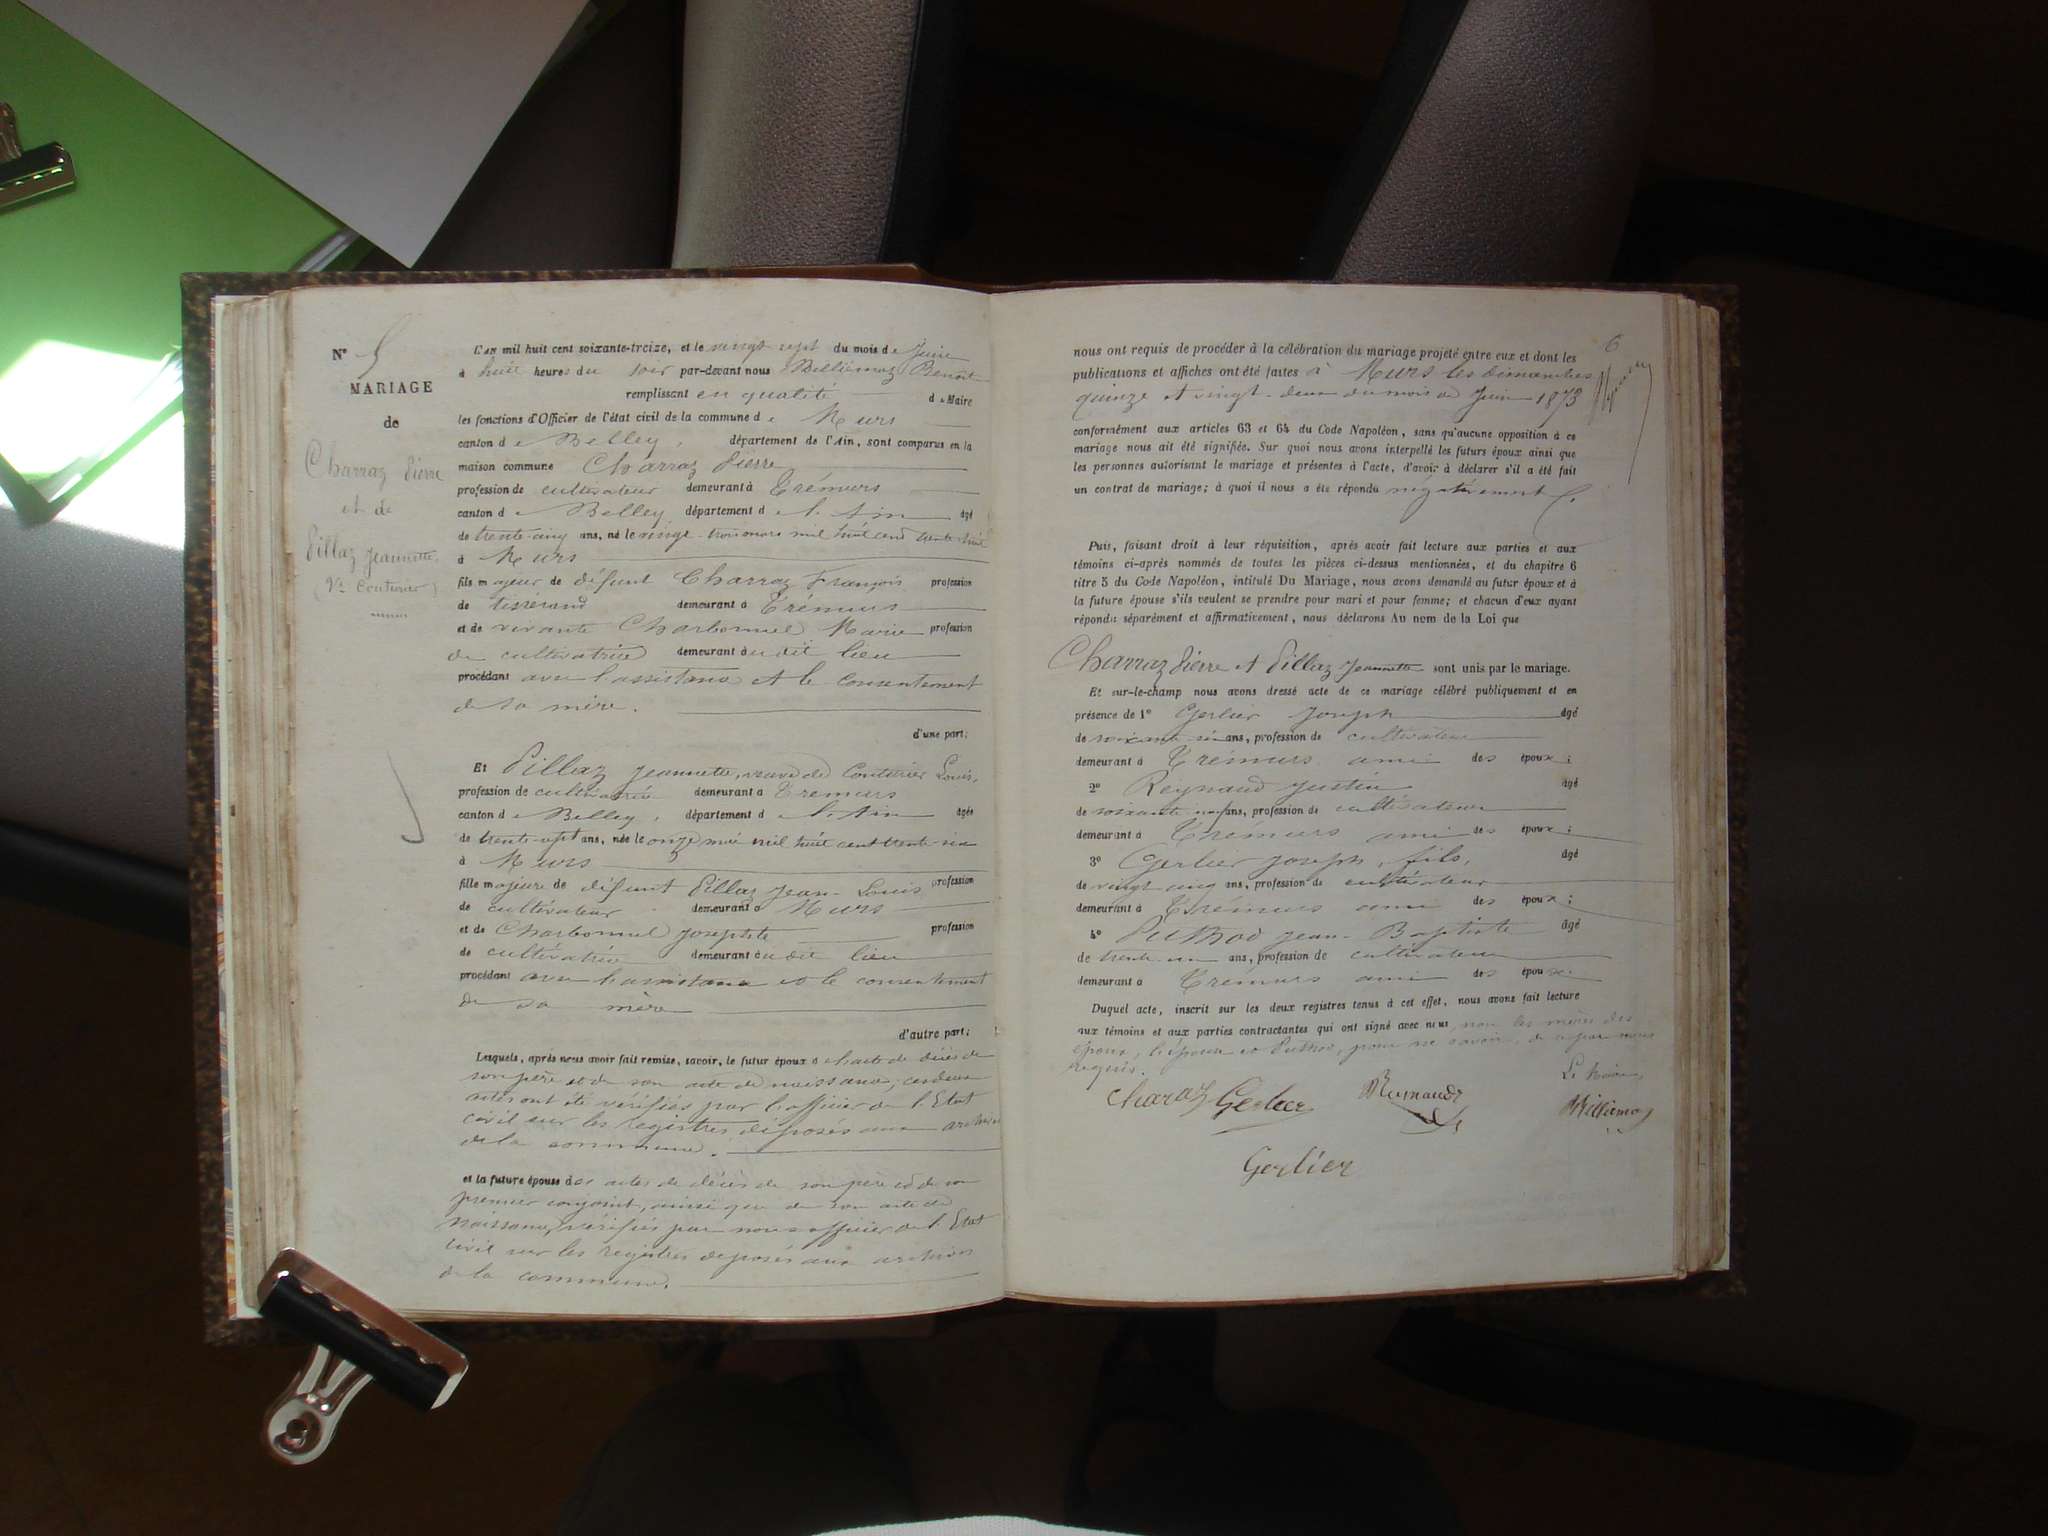 N° 5
MARIAGE
de
Charraz Pierre
et de
Pillaz Jeannette
(Vve Couturier)
L'AN mil huit cent soixante-treize, et le vingt sept du mois de Juin
à huit heures du soir par-devant nous Billiémaz Benoit
remplissant en qualité de Maire
les fonctions d'Officier de l'état civil de la commune de Murs
canton de Belley, département de l'Ain, sont comparus en la
maison commune Charraz Pierre
profession de cultivateur demeurant à Trémurs
canton de Belley département de l'Ain âgé
de trente-cinq ans, né le vingt-trois mars mil huit cent trente huit
à Murs
fils majeur de défunt Charraz François profession
de tisserand demeurant à Trémurs
et de vivante Charbonnel Marie profession
de cultivatrice demeurant au dit lieu
procédant avec l'assistance et le consentement
de sa mère.
d'une part;
Et Pillaz Jeannette, veuve de Couturier Louis,
profession de cultivatrice demeurant à Trémurs
canton de Belley, département de l'Ain âgée
de trente-sept ans, née le onze mai mil huit cent trente-six
à Murs
fille majeure de défunt Pillaz Jean-Louis profession
de cultivateur demeurant à Murs
et de Charbonnel Josephte profession
de cultivatrice demeurant au dit lieu
procédant avec l'assistance et le consentement
de sa mère
d'autre part;
Lesquels, après nous avoir fait remise, savoir, le futur époux de l'acte de décès de
son père et de son acte de naissance, ces deux
actes ont été vérifiés par l'officier de l'Etat
civil sur les registres déposés aux archives
de la commune.
et la future épouse des actes de décès de son père et de son
premier conjoint, ainsi que de son acte de
naissance, vérifiés par nous officier de l'Etat
civil sur les registres déposés aux archives
de la commune.
6
nous ont requis de procéder à la célébration du mariage projeté entre eux et dont les
publications et affiches ont été faites à Murs les dimanches
quinze et vingt-deux du mois de Juin 1873
conformément aux articles 63 et 64 du Code Napoléon, sans qu'aucune opposition à ce
mariage nous ait été signifiée. Sur quoi nous avons interpellé les futurs époux ainsi que
les personnes autorisant le mariage et présentes à l'acte, d'avoir à déclarer s'il a été fait
un contrat de mariage; à quoi il nous a été répondu négativement
Puis, faisant droit à leur réquisition, après avoir fait lecture aux parties et aux
témoins ci-après nommés de toutes les pièces ci-dessus mentionnées, et du chapitre 6
titre 5 du Code Napoléon, intitulé Du Mariage, nous avons demandé au futur époux et à
la future épouse s'ils veulent se prendre pour mari et pour femme; et chacun d'eux ayant
répondu séparément et affirmativement, nous déclarons Au nom de la Loi que
Charraz Pierre et Pillaz Jeannette sont unis par le mariage.
Et sur-le-champ nous avons dressé acte de ce mariage célébré publiquement et en
présence de 1° Gerlier Joseph âgé
de soixante ans, profession de cultivateur
demeurant à Trémurs ami des époux;
2° Reynaud Justin âgé
de soixante neuf ans, profession de cultivateur
demeurant à Trémurs ami des époux;
3° Gerlier Joseph, fils, âgé
de vingt cinq ans, profession de cultivateur
demeurant à Trémurs ami des époux;
4° Puthod Jean-Baptiste âgé
de trente-un ans, profession de cultivateur
demeurant à Trémurs ami des époux.
Duquel acte, inscrit sur les deux registres tenus à cet effet, nous avons fait lecture
aux témoins et aux parties contractantes qui ont signé avec nous, non les mères des
époux, l'épouse et Puthod, pour ne savoir, de ce par nous
requis.
Le Maire,
Charaz Gerlier Reynaud Billiémaz
Gerlier